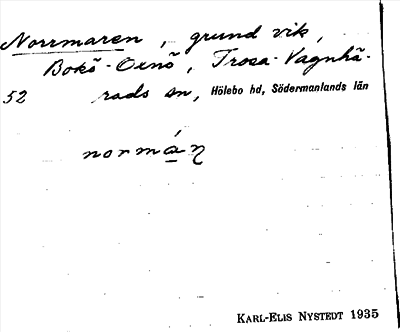 Norrmaren, grund vik,
Bokö-Oxnö, Trosa-Vagnhä-
52 rads sn, Hölebo hd, Södermanlands län
normáꞑ
KARL-ELIS NYSTEDT 1935